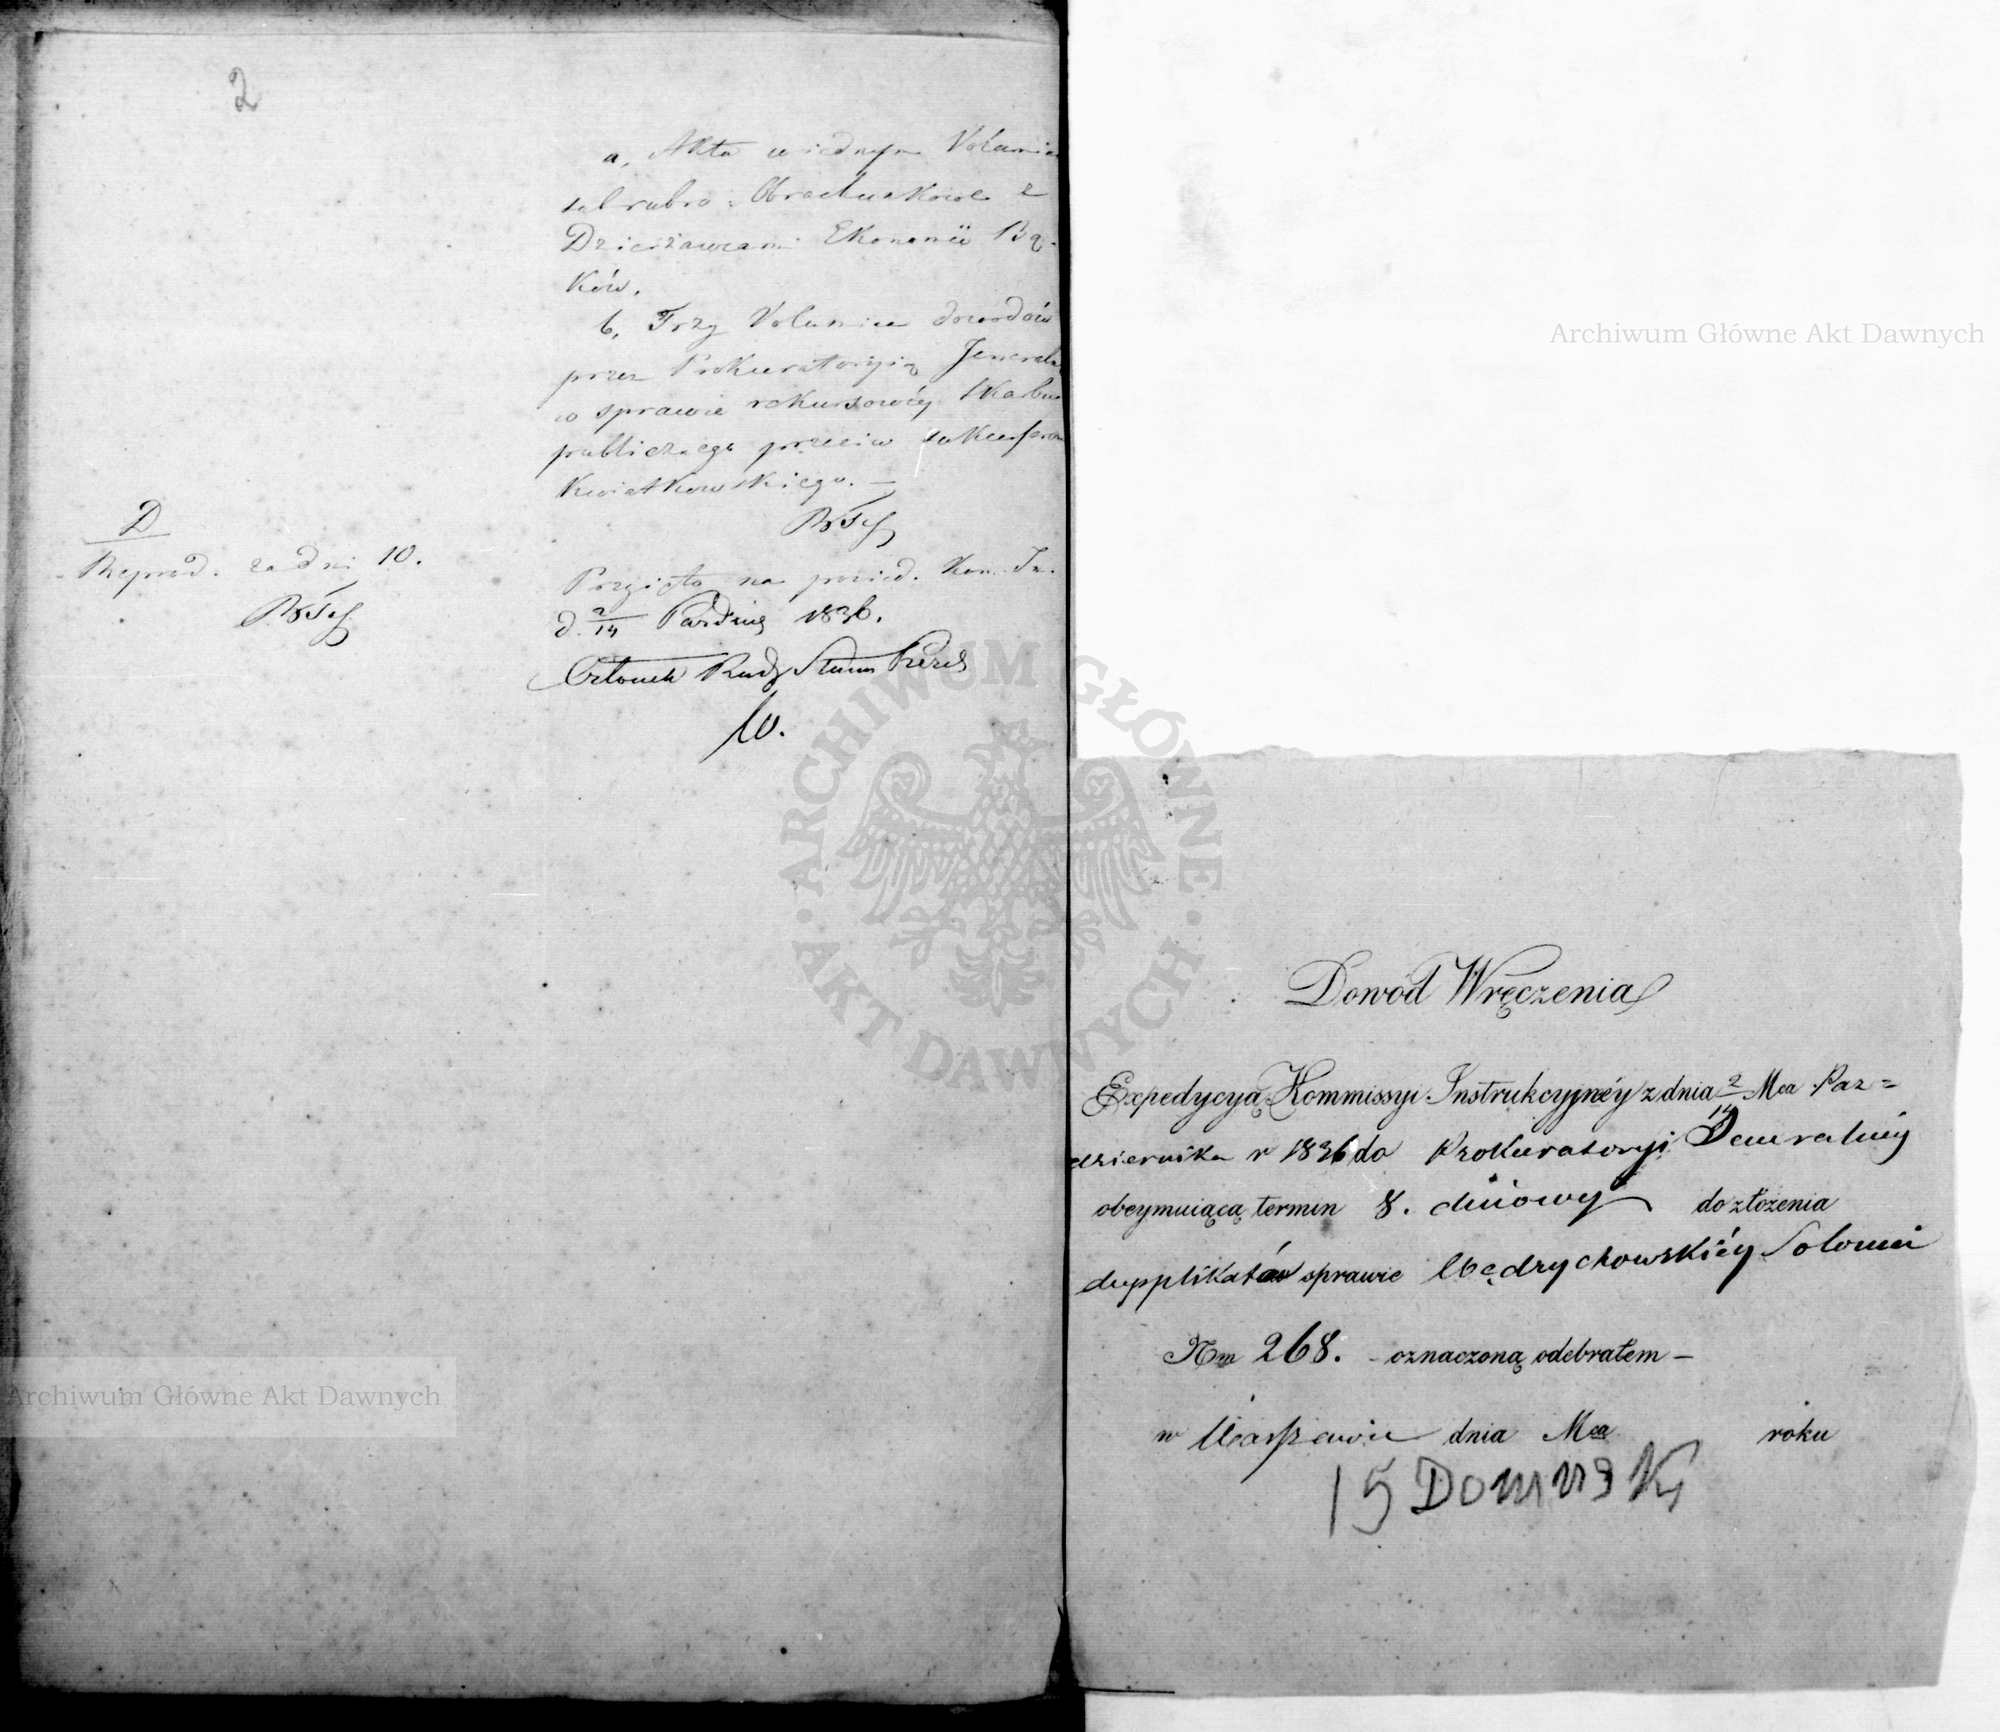 2
a, Akta w iednym Volumie
sub rubro: Obrachunkowe z
Dzierżawcami Ekonomii Bą-
ków.
b, Trzy Volumina dowodów
przez Prokuratoryią Jeneralną
w sprawie rekursowéy Skarbu
publicznego przeciw sukcessorom
Kwiatkowskiego. —
D
Reprod. za dni 10.
Przyięto na posied. Kom. In.
d. 2/14 Paździer 1836.
Członek Rady Stanu Prezes
Archiwum Główne Akt Dawnych
ARCHIWUM GŁÓWNE · AKT DAWNYCH ·
Dowod Wręczenia
Expedycyą Kommissyi Instrukcyjnéy z dnia 2/14 Mca Paz=
dziernika r 1836 do Prokuratoryi Jeneralnéy
obeymuiącą termin 8. dniowy do złożenia
dupplikat w sprawie Wędrychowskiéy Salomei
Nm 268. - oznaczoną odebrałem —
w Warszawie dnia Mca roku
15
Archiwum Główne Akt Dawnych